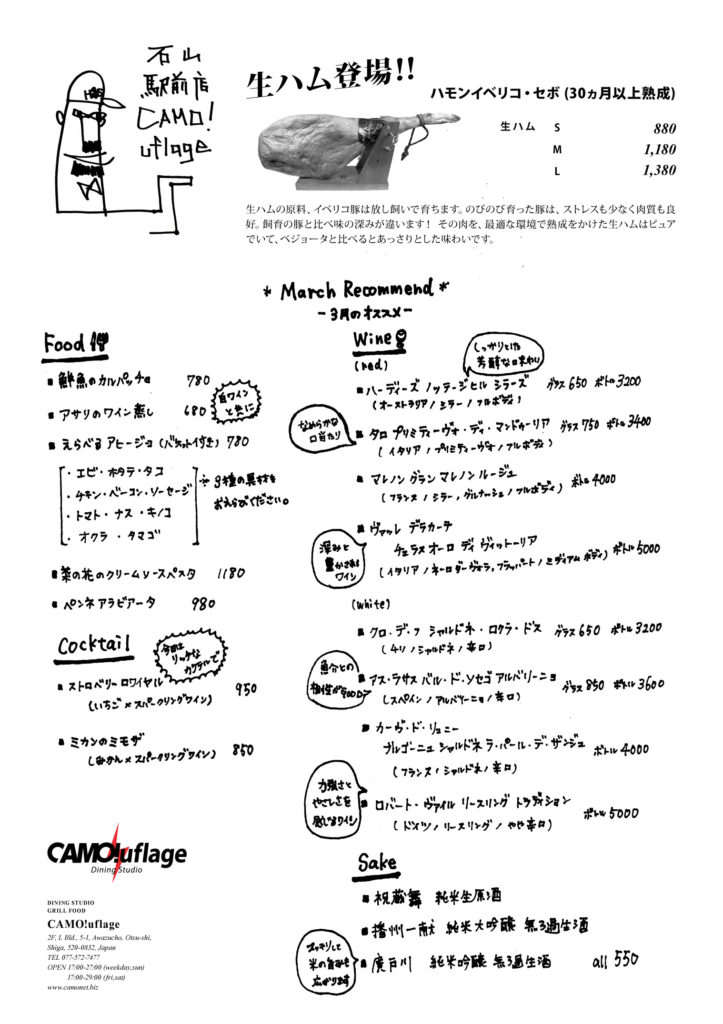 石山
駅前店
CAMO!
uflage
生ハム登場!!
ハモンイベリコ・セボ (30ヵ月以上熟成)
生ハム S 880
M 1,180
L 1,380
生ハムの原料、イベリコ豚は放し飼いで育ちます。のびのび育った豚は、ストレスも少なく肉質も良
好。飼育の豚と比べ味の深みが違います! その肉を、最適な環境で熟成をかけた生ハムはピュア
でいて、ベジョータと比べるとあっさりとした味わいです。
* March Recommend *
-3月のオススメ-
Food
鮮魚のカルパッチョ 780
アサリのワイン蒸し 680
白ワイン
と共に
えらべるアヒージョ (バゲット付き) 780
・エビ・ホタテ・タコ
・チキン・ベーコン・ソーセージ
・トマト・ナス・キノコ
・オクラ・タマゴ
※3種の具材を
おえらびください。
菜の花のクリームソースパスタ 1180
ペンネアラビアータ 980
Cocktail
今回は
リッチな
カクテルで
ストロベリーロワイヤル 950
(いちご×スパークリングワイン)
ミカンのミモザ 850
(みかん×スパークリングワイン)
Wine
(red)
しっかりとした
芳醇な味わい
ハーディーズ ノッテージヒル シラーズ グラス650 ボトル3200
(オーストラリア/シラー/フルボディ)
なめらかな
口当たり
タロ プリミティーヴォ・ディ・マンドゥーリア グラス750 ボトル3400
(イタリア/プリミティーヴォ/フルボディ)
マレノン グラン マレノン ルージュ ボトル4000
(フランス/シラー,グルナッシュ/フルボディ)
深みと
豊かさある
ワイン
ヴァッレ デラカーテ
チェラスオーロ ディ ヴィットーリア ボトル5000
(イタリア/ネーロダーヴォラ,フラッパート/ミディアムボディ)
(white)
クロ・デ・フ シャルドネ・ロクラ・ドス グラス650 ボトル3200
(チリ/シャルドネ/辛口)
魚介との
相性がGOOD
アス・ラサス バル・ド・ソセゴ アルバリーニョ グラス850 ボトル3600
(スペイン/アルバリーニョ/辛口)
カーヴ・ド・リュニー
ブルゴーニュ シャルドネ ラ・パール・デ・ザンジュ ボトル4000
(フランス/シャルドネ/辛口)
力強さと
やさしさを
感じるワイン
ロバート・ヴァイル リースリング トラディション ボトル5000
(ドイツ/リースリング/やや辛口)
Sake
祝蔵舞 純米生原酒
播州一献 純米大吟醸 無ろ過生酒
スッキリして
米の旨みも
広がります
廣戸川 純米吟醸 無ろ過生酒 all 550
CAMO!uflage
Dining Studio
DINING STUDIO
GRILL FOOD
CAMO!uflage
2F, L Bld., 5-1, Awazucho, Otsu-shi,
Shiga, 520-0832, Japan
TEL 077-572-7477
OPEN 17:00-27:00 (weekday,sun)
17:00-29:00 (fri,sat)
www.camonet.biz